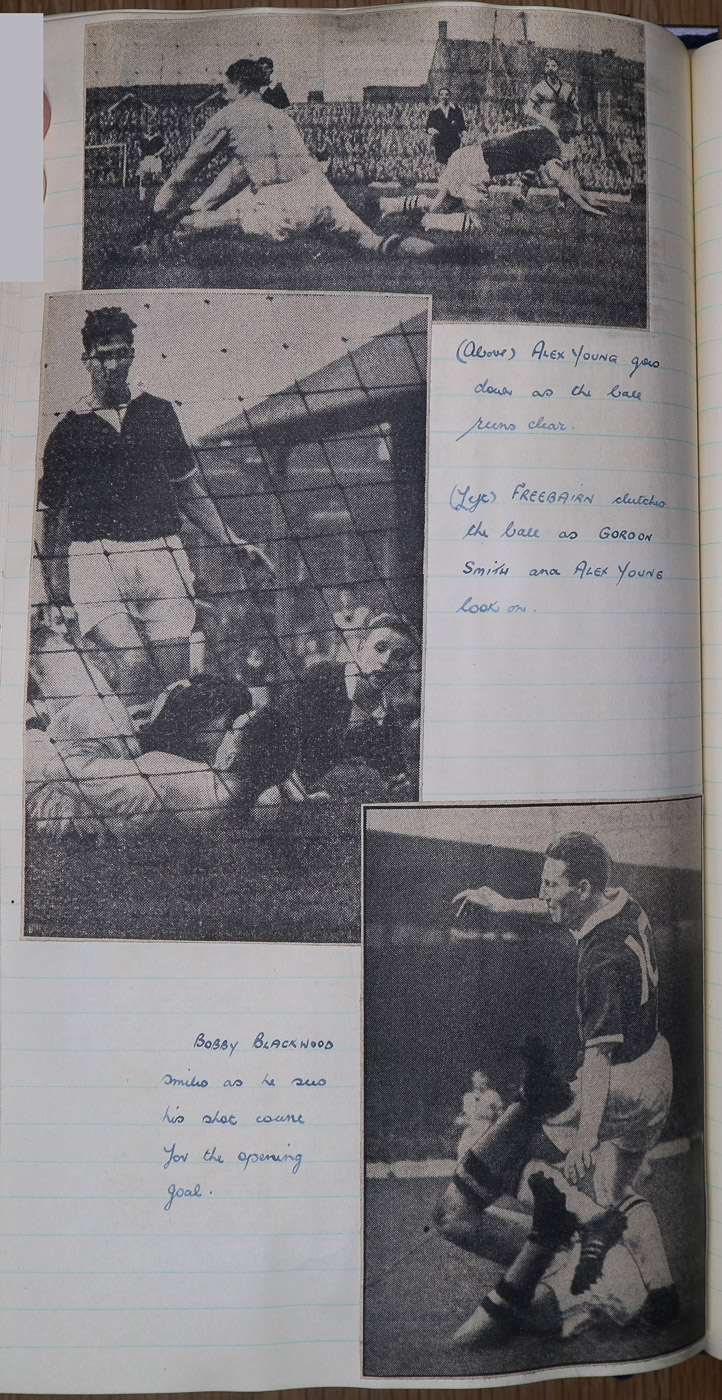 (Above) ALEX YOUNG goes
down as the ball
runs clear.
(Left) FREEBAIRN clutches
the ball as GORDON
Smith and ALEX YOUNG
look on.
BOBBY BLACKWOOD
smiles as he sees
his shot count
for the opening
goal.
10